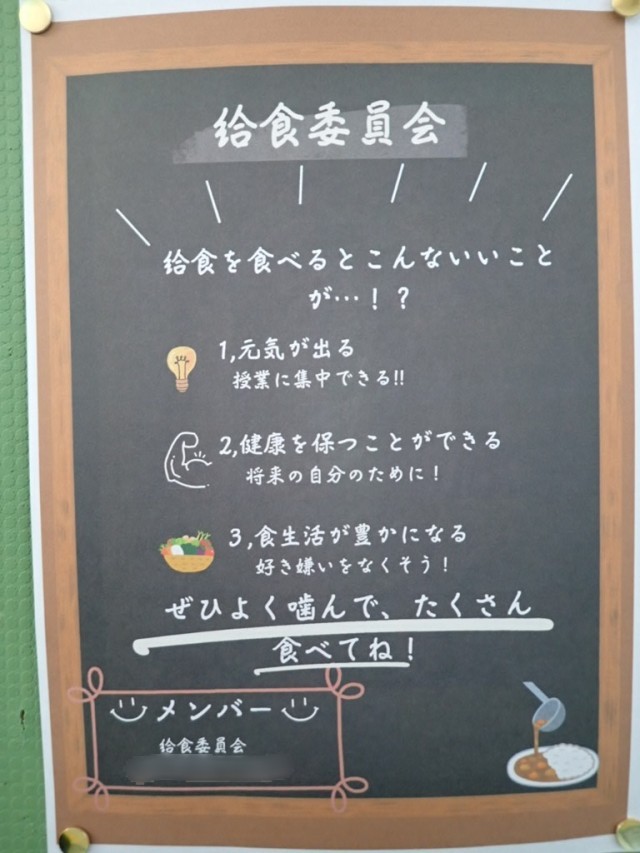 給食委員会
給食を食べるとこんないいこと
が…！？
1,元気が出る
授業に集中できる!!
2,健康を保つことができる
将来の自分のために！
3,食生活が豊かになる
好き嫌いをなくそう！
ぜひよく噛んで、たくさん
食べてね！
メンバー
給食委員会